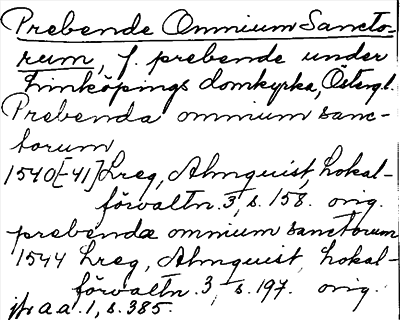 Prebende Omnium Sancto-
rum, f. prebende under
Linköpings domkyrka, Östergl.
Prebenda omnium sanc-
torum
1540[-41] Lreg, Almquist, Lokal-
förvaltn. 3, s. 158. orig.
prebende omnium sanctorum
1544 Lreg, Almquist, Lokal-
förvaltn. 3, s. 197. orig.
jfr a.a. 1, s. 385.